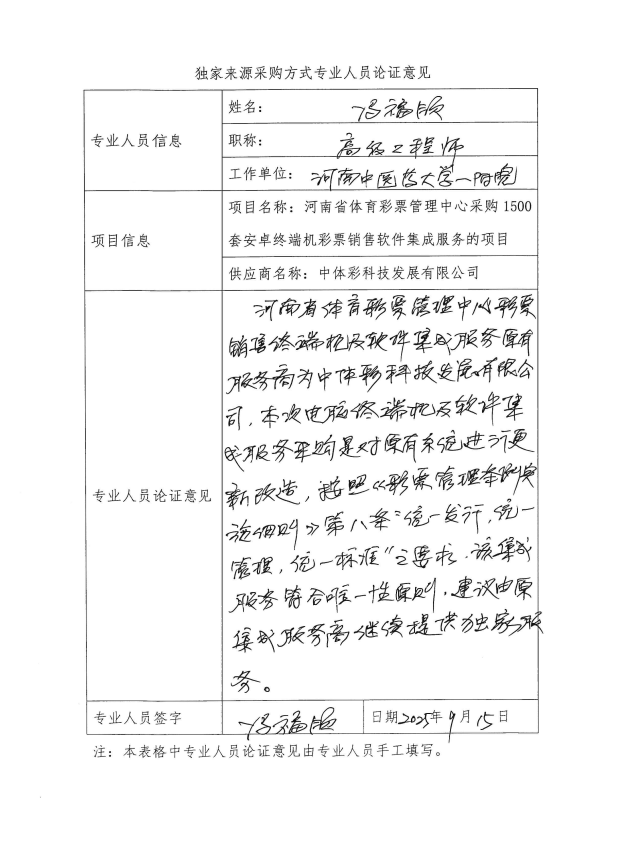 独家来源采购方式专业人员论证意见
专业人员信息
姓名：冯福顺
职称：高级工程师
工作单位：河南中医药大学一附院
项目信息
项目名称：河南省体育彩票管理中心采购 1500
套安卓终端机彩票销售软件集成服务的项目
供应商名称：中体彩科技发展有限公司
专业人员论证意见
河南省体育彩票管理中心彩票
销售终端机及软件集成服务原有
服务商为中体彩科技发展有限公
司，本次电脑终端机及软件集
成服务采购是对原有系统进行更
新改造，按照《彩票管理条例实
施细则》第八条“统一发行，统一
管理，统一标准”之要求，该集成
服务符合唯一性原则，建议由原
集成服务商继续提供独家服
务。
专业人员签字
冯福顺
日期2025年9月15日
注：本表格中专业人员论证意见由专业人员手工填写。